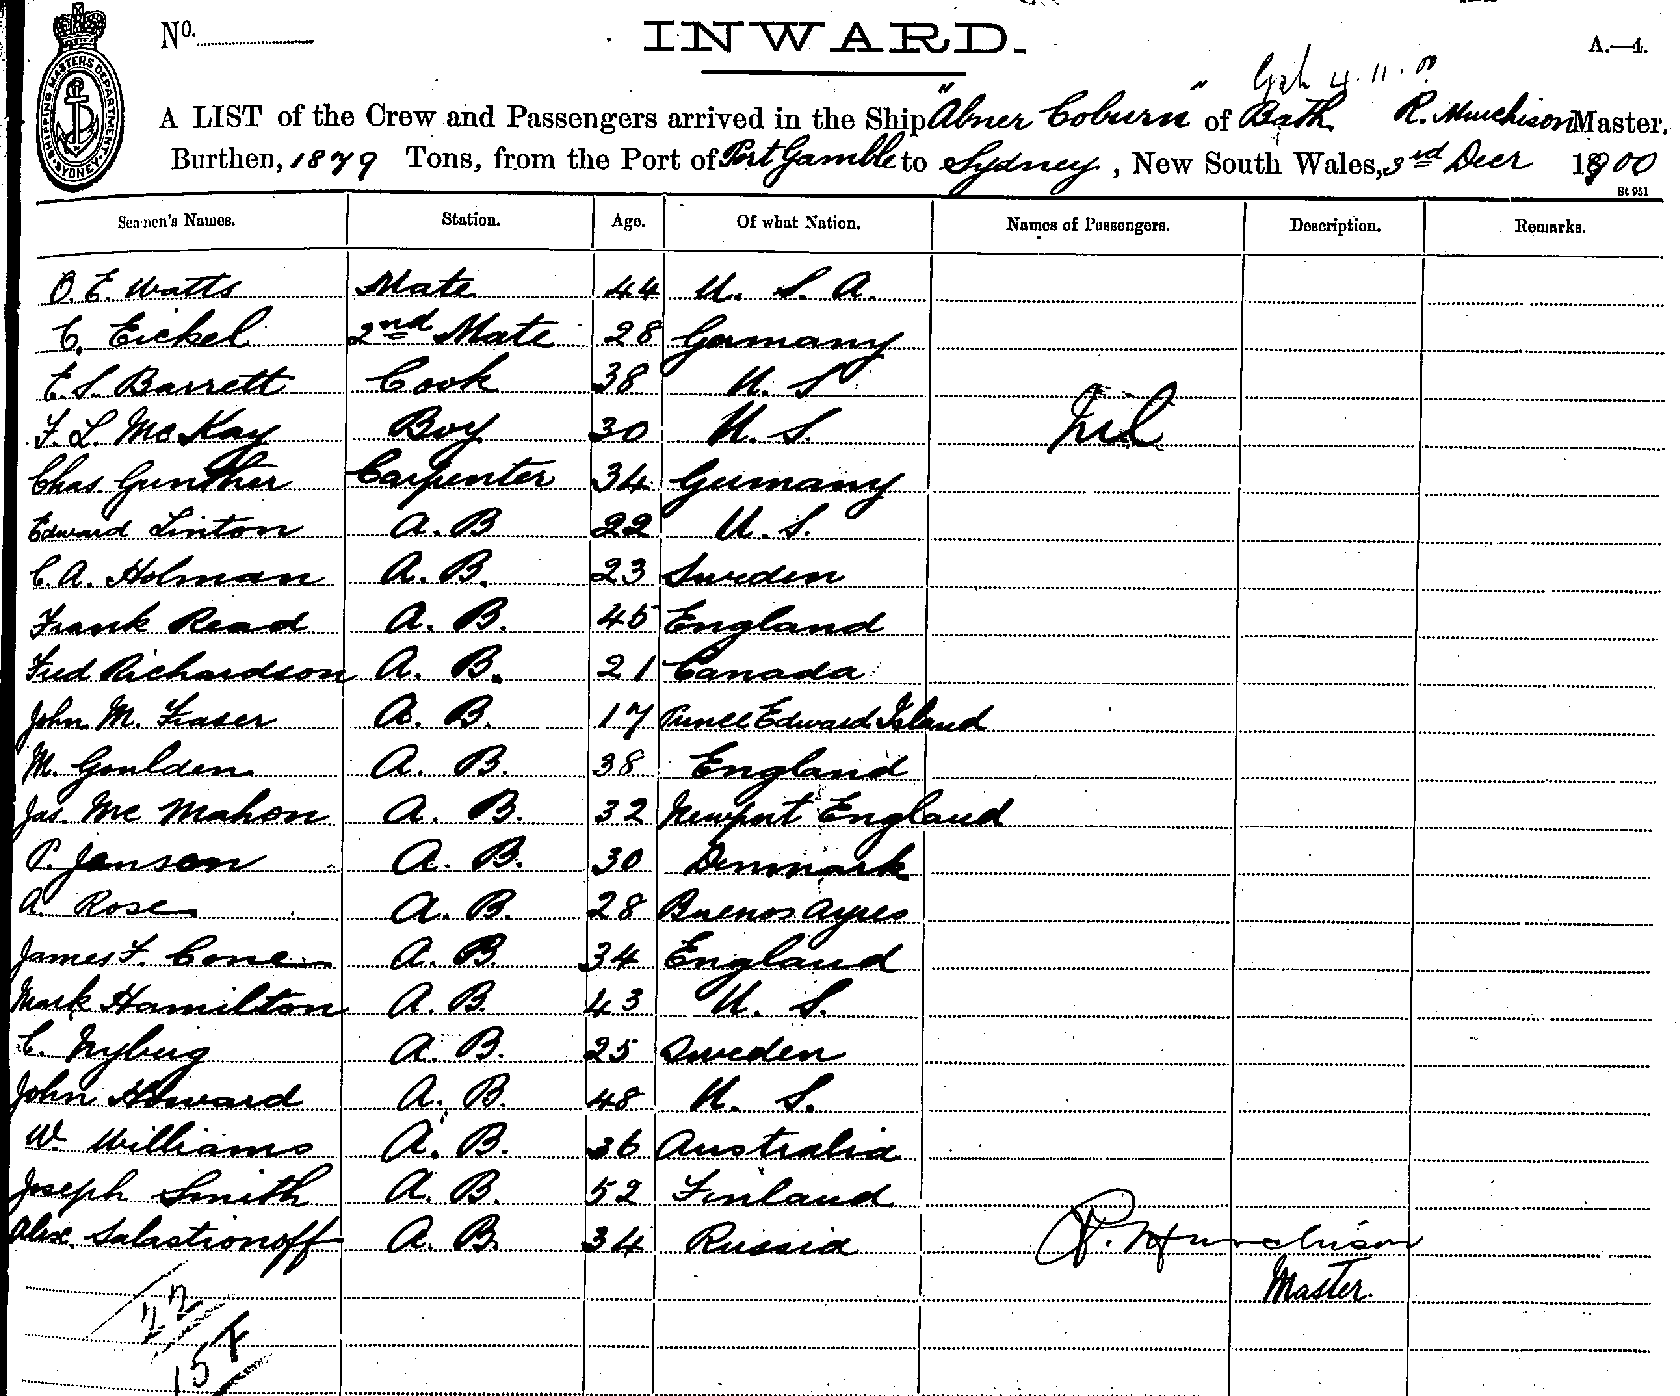 No.
INWARD.
A.—4.
4.11.00
A LIST of the Crew and Passengers arrived in the Ship "Abner Coburn" of Bath R. Murchison Master,
Burthen, 1879 Tons, from the Port of Port Gamble to Sydney, New South Wales, 3rd Decr 1900
St 951
SHIPPING MASTERS DEPARTMENT SYDNEY
Seamen's Names. Station. Age. Of what Nation. Names of Passengers. Description. Remarks.
O. E. Watts Mate 44 U. S. A.
C. Eickel 2nd Mate 28 Germany
E. S. Barrett Cook 38 U. S
F. L. McKay Boy 30 U. S. Nil
Chas Gunther Carpenter 34 Germany
Edward Linton A. B 22 U. S.
C. A. Holman A. B. 23 Sweden
Frank Read A. B. 45 England
Fred Richardson A. B. 21 Canada
John M. Fraser A. B. 17 Prince Edward Island
M. Goulden A. B. 38 England
Jas. McMahon A. B. 32 Newport England
P. Jenson A. B. 30 Denmark
A. Rose A. B. 28 Buenos Ayres
James F. Cone A. B. 34 England
Mark Hamilton A. B. 43 U. S.
C. Nyberg A. B. 25 Sweden
John Howard A. B. 48 U. S.
W. Williams A. B. 36 Australia
Joseph Smith A. B. 52 Finland
Alex. Salastionoff A. B. 34 Russia R. Murchison
Master.
22
15